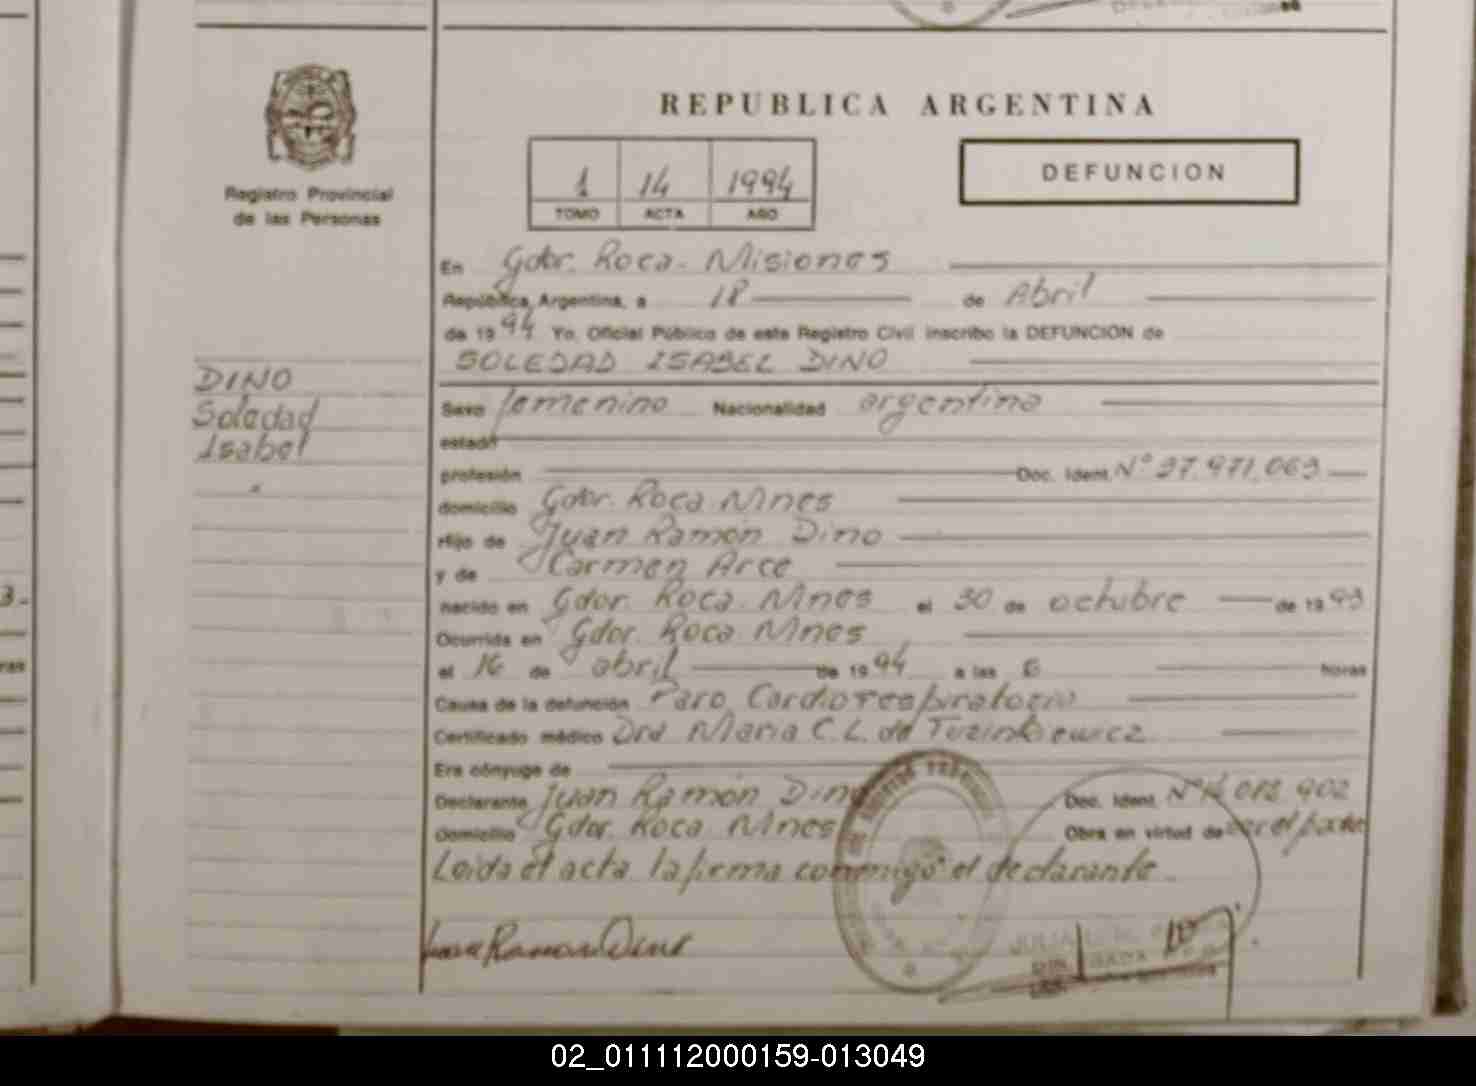 REPUBLICA ARGENTINA
Registro Provincial
de las Personas
1 14 1994
TOMO ACTA AÑO
DEFUNCION
En Gdor. Roca - Misiones
República Argentina, a 18 de Abril
de 1994 Yo, Oficial Público de este Registro Civil inscribo la DEFUNCION de
SOLEDAD ISABEL DINO
DINO
Soledad
Isabel
Sexo femenino Nacionalidad argentina
estado
profesión Doc. Ident. Nº 37.971.063
domicilio Gdor. Roca Mnes
Hijo de Juan Ramón Dino
y de Carmen Arce
nacido en Gdor. Roca Mnes el 30 de octubre de 1993
Ocurrida en Gdor. Roca Mnes
el 16 de abril de 1994 a las 6 horas
Causa de la defunción Paro Cardiorespiratorio
Certificado médico Dra Maria C. L. de Tuzinkiewicz
Era cónyuge de
Declarante Juan Ramón Dino Doc. Ident. Nº 14 012 902
domicilio Gdor. Roca Mnes Obra en virtud de ser el padre
Leida el acta la firma conmigo el declarante
Juan Ramon Dino
02_011112000159-013049